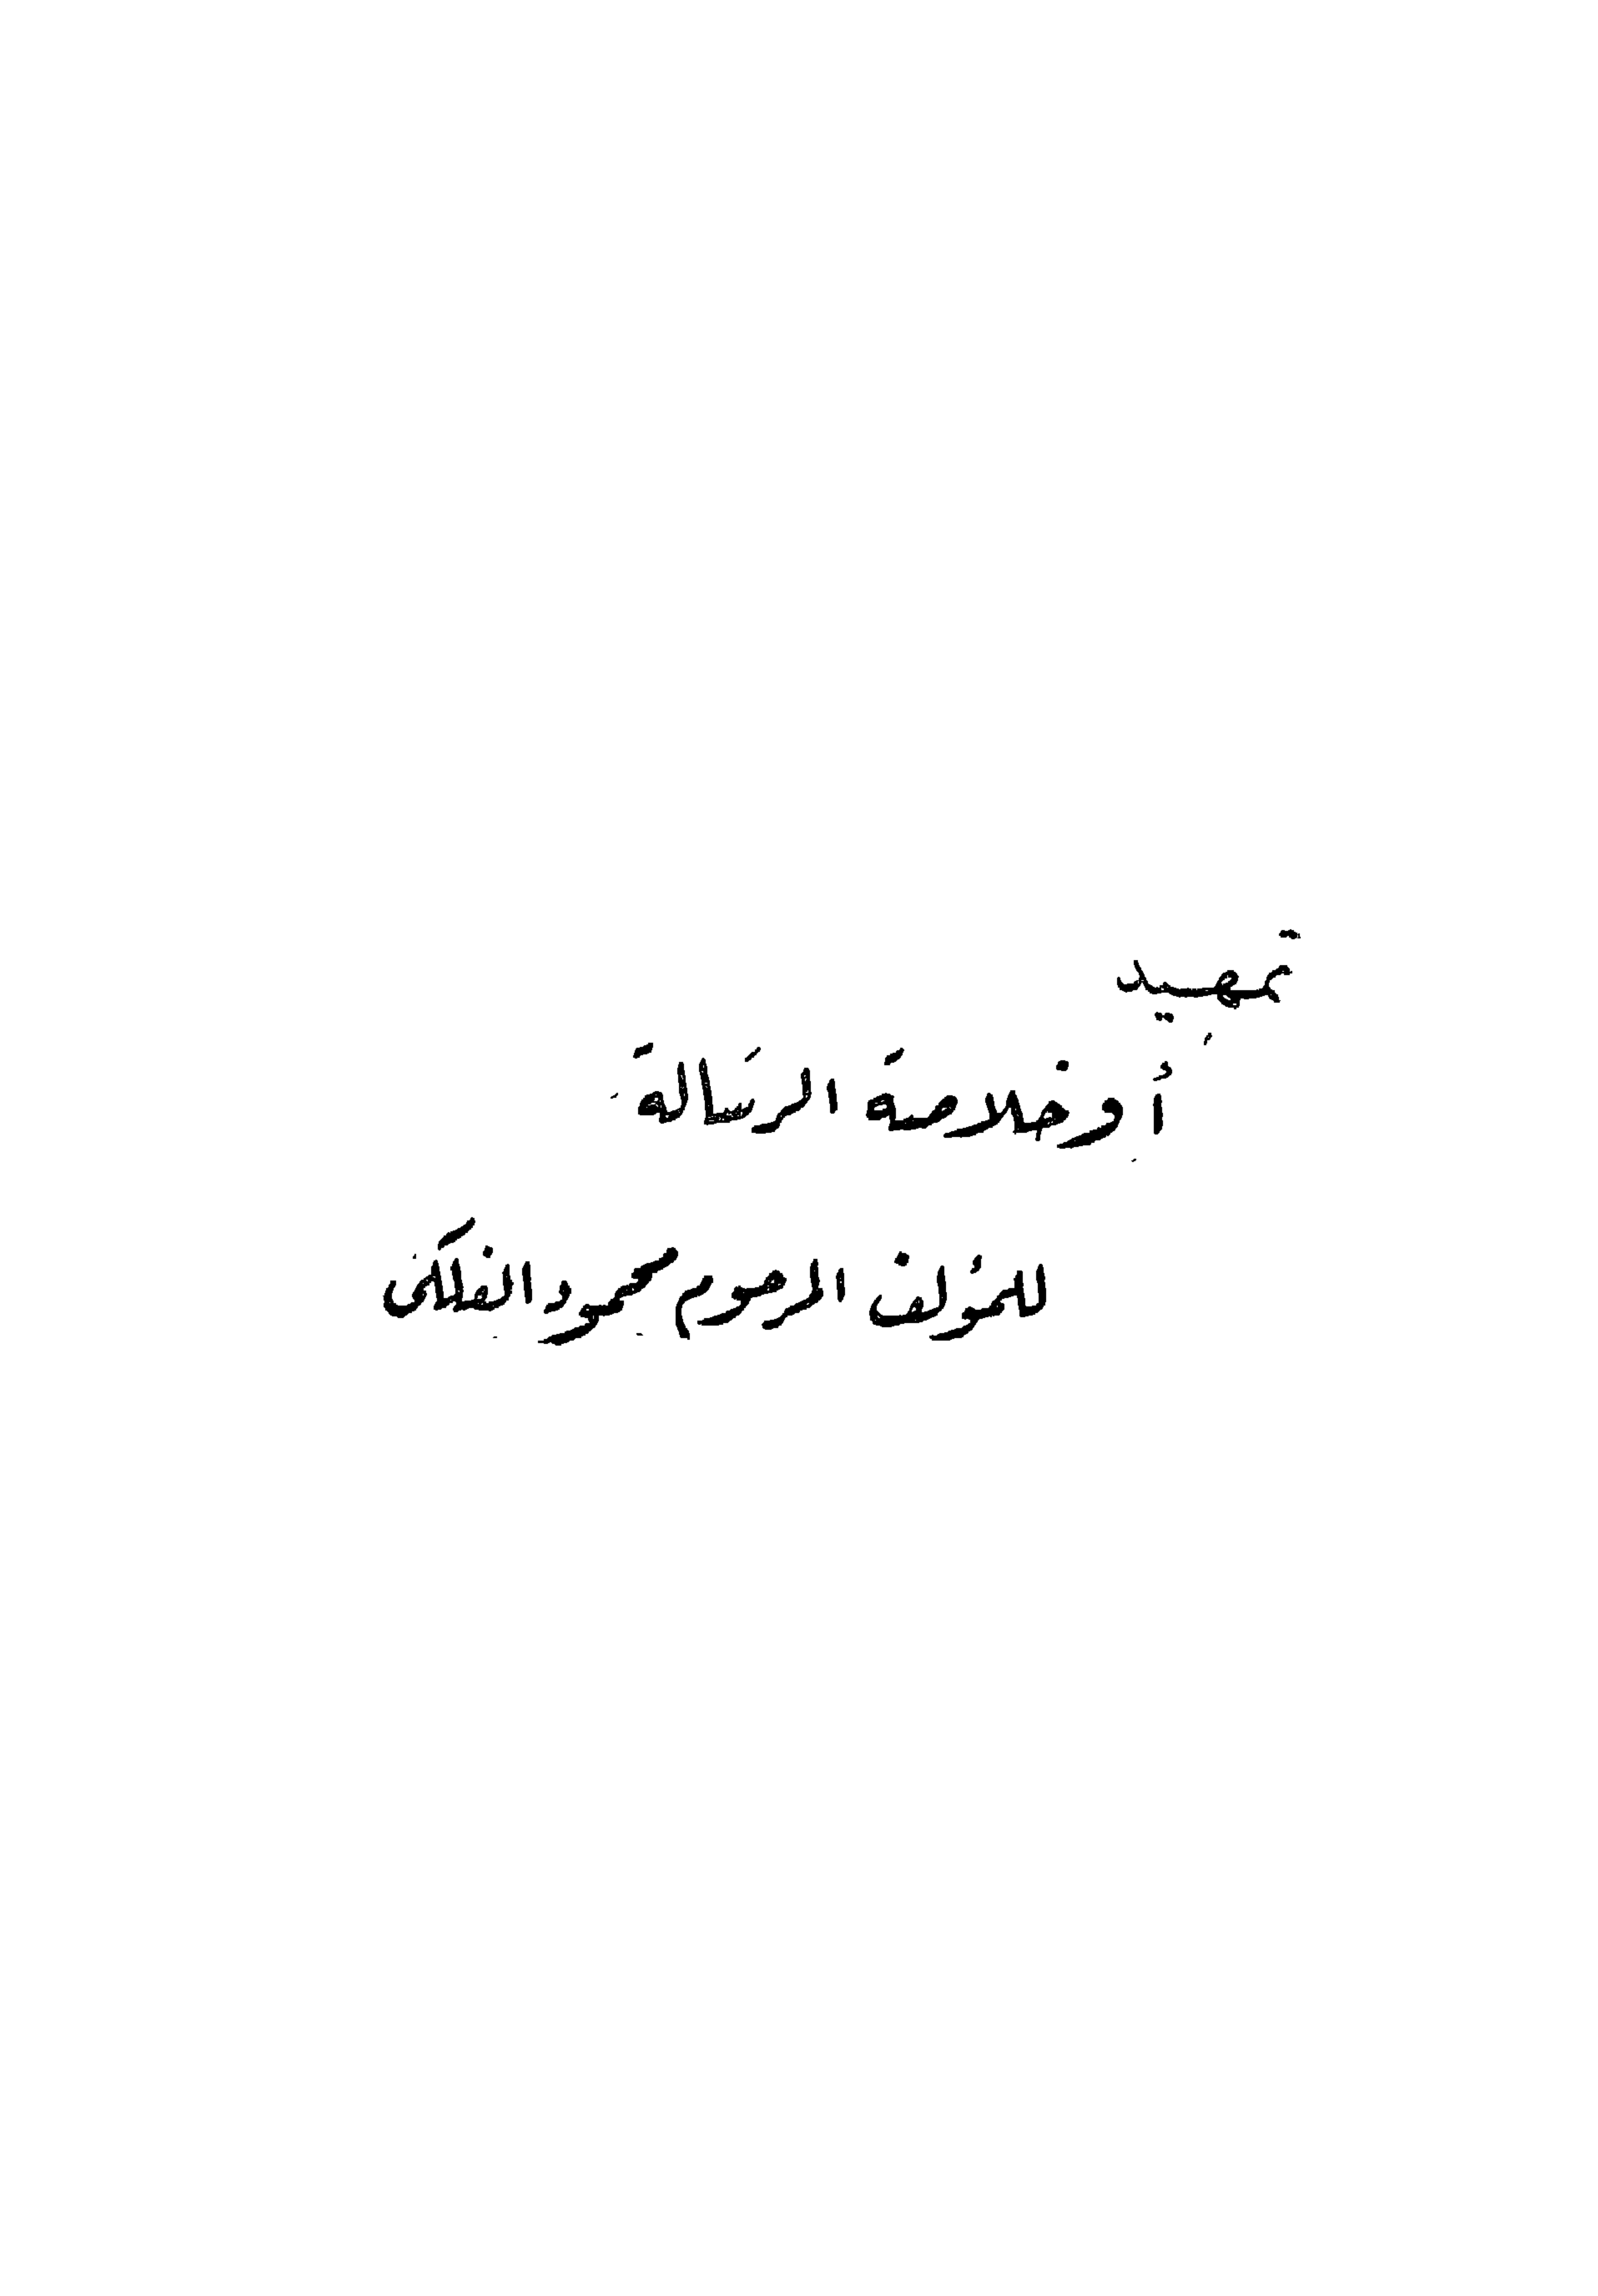 تمهيد
أو خلاصة الرسالة
للمؤلف المرحوم محمود الفلكى